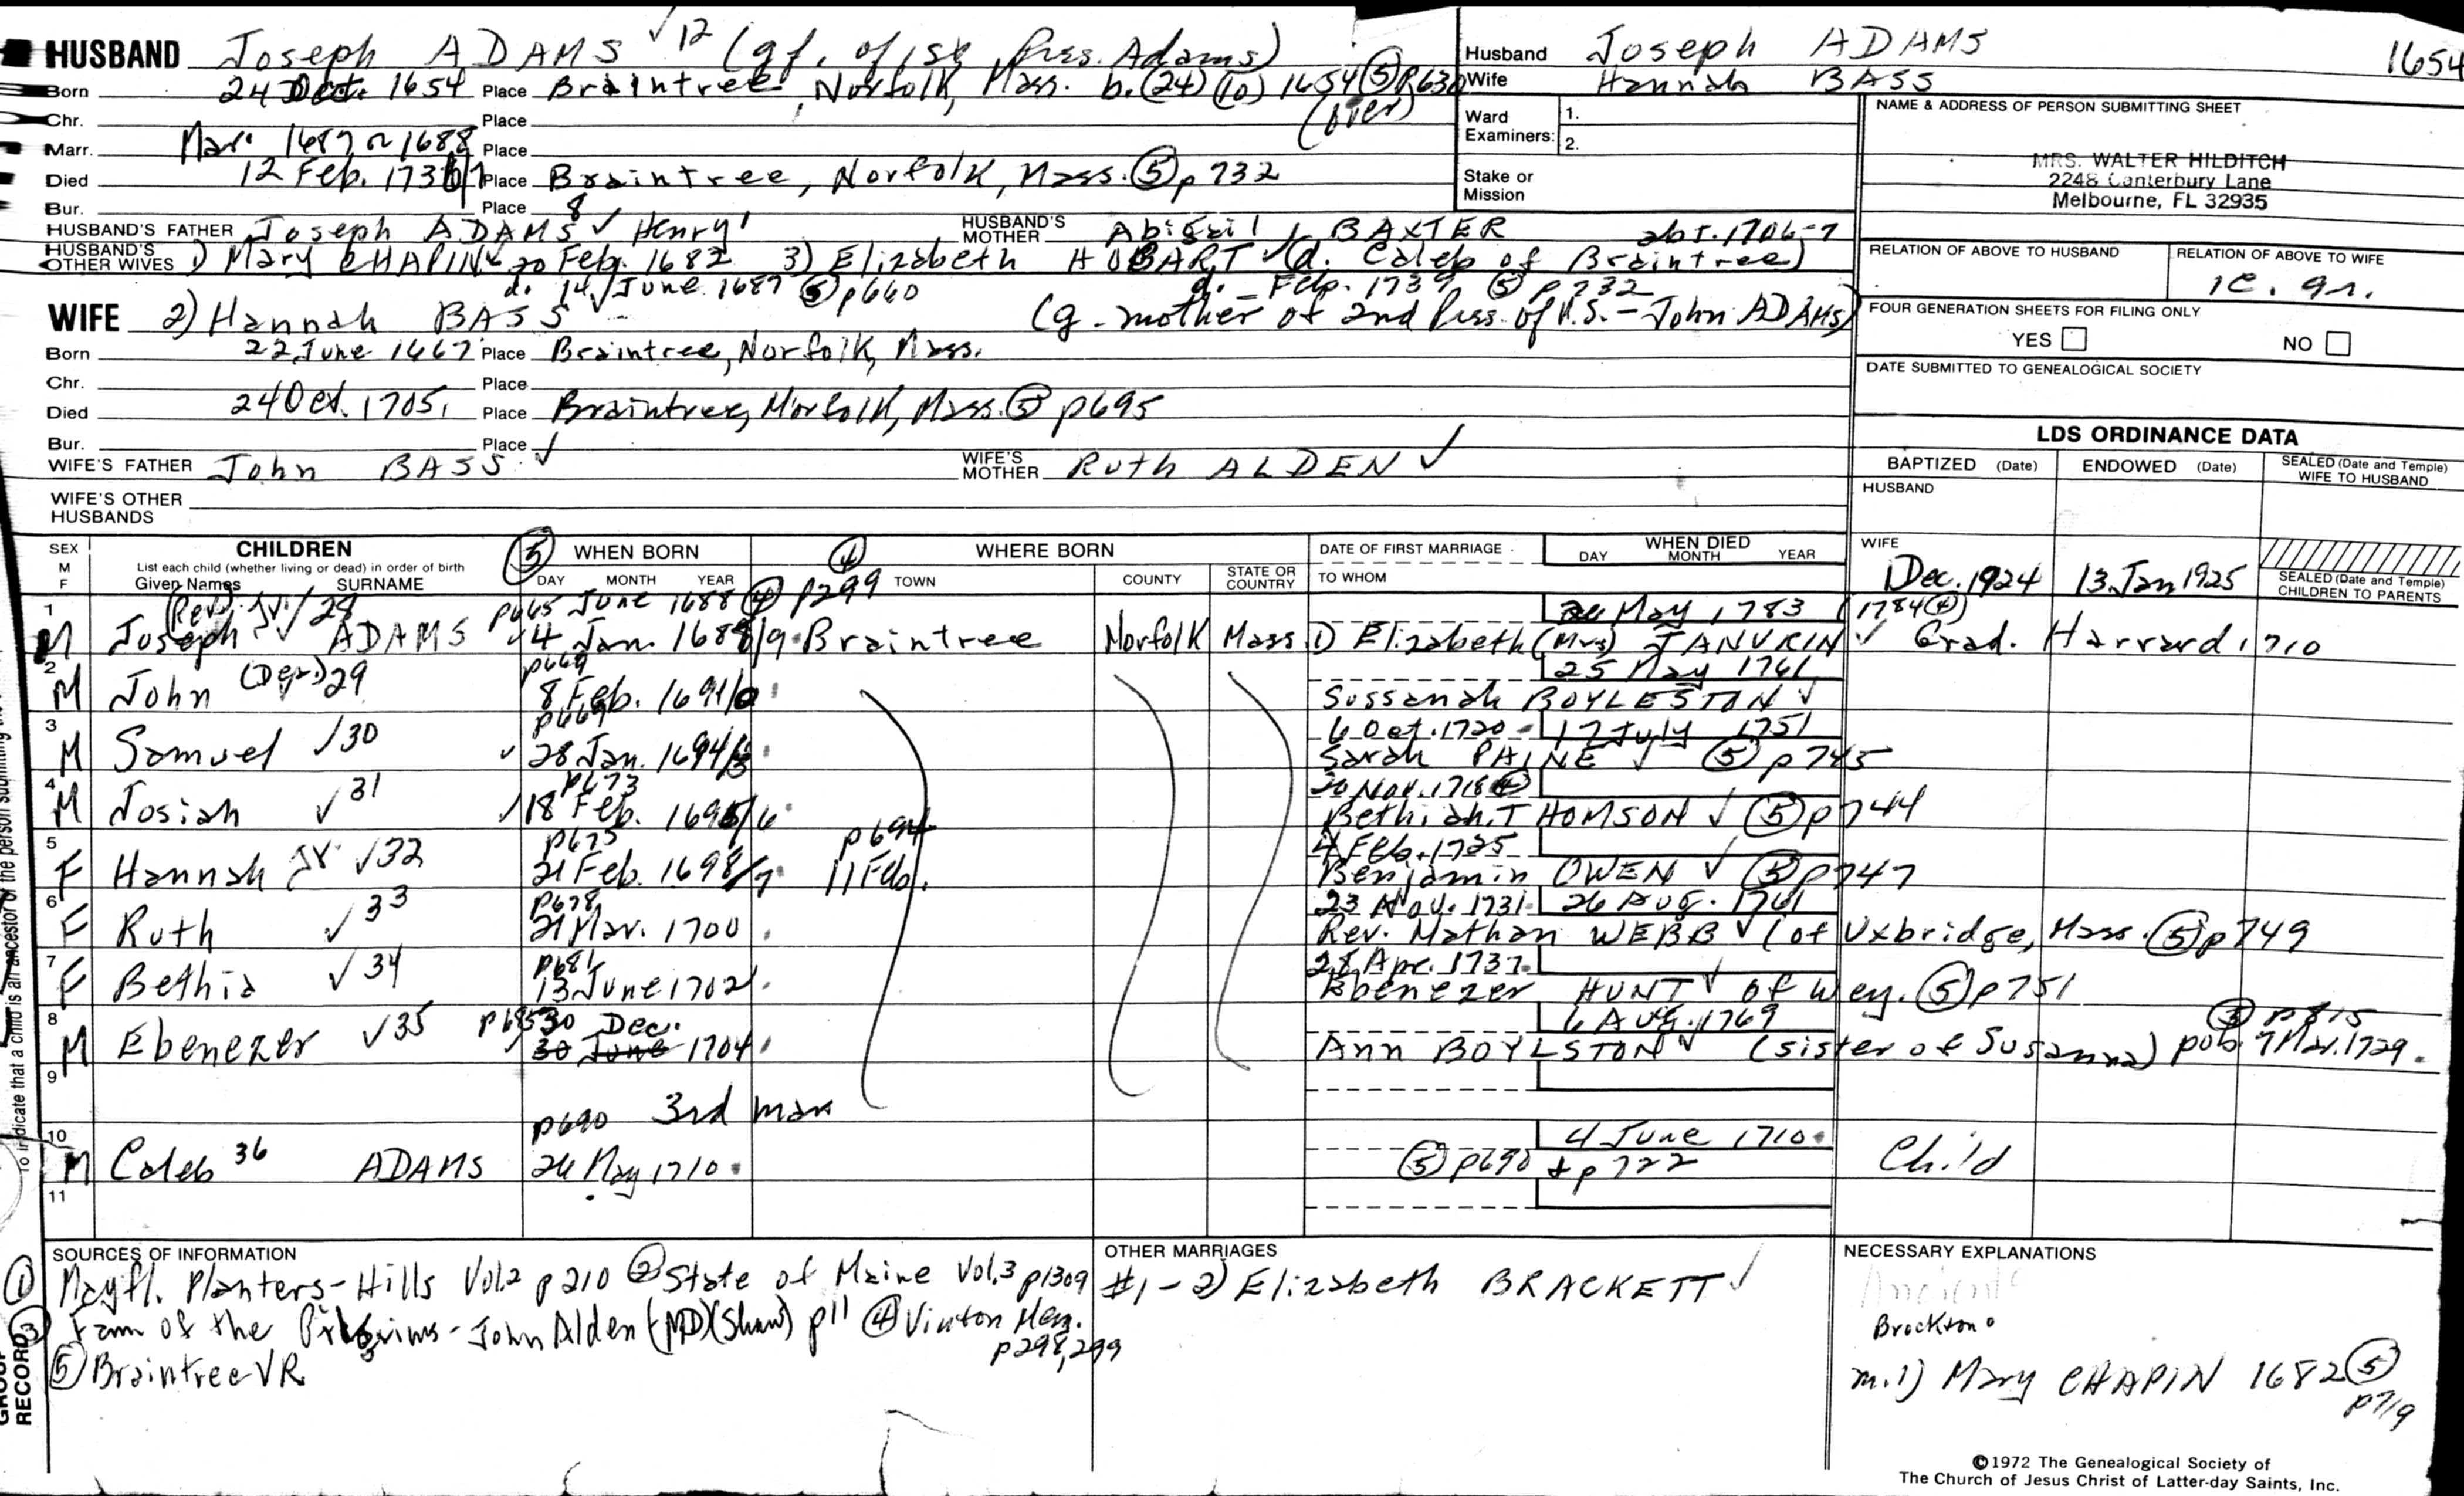 HUSBAND Joseph ADAMS ✓12 (gf. of 1st Pres. Adams)
Born 24 Oct. 1654 Place Braintree, Norfolk, Mass. b. (24) (10) 1654 ⑤ p630
(over)
Chr. Place
Marr. Mar. 1687 or 1688 Place
Died 12 Feb. 1736/7 Place Braintree, Norfolk, Mass. ⑤ p732
Bur. Place
HUSBAND'S FATHER Joseph ADAMS8 ✓ Henry1 HUSBAND'S MOTHER Abigail BAXTER abt. 1706-7
HUSBAND'S OTHER WIVES 1) Mary CHAPIN ✓ 20 Feb. 1682 3) Elizabeth HOBART ✓ (d. Caleb of Braintree)
d. 14 June 1687 ⑤ p660 d. _ Feb. 1739 ⑤ p732
WIFE 2) Hannah BASS (g-mother of 2nd Pres. of U.S. - John ADAMS)
Born 22 June 1667 Place Braintree, Norfolk, Mass.
Chr. Place
Died 24 Oct. 1705 Place Braintree, Norfolk, Mass. ⑤ p695
Bur. Place ✓
WIFE'S FATHER John BASS ✓ WIFE'S MOTHER Ruth ALDEN ✓
WIFE'S OTHER HUSBANDS
Husband Joseph ADAMS 1654
Wife Hannah BASS
Ward Examiners: 1.
2.
Stake or Mission
NAME & ADDRESS OF PERSON SUBMITTING SHEET
MRS. WALTER HILDITCH
2248 Canterbury Lane
Melbourne, FL 32935
RELATION OF ABOVE TO HUSBAND RELATION OF ABOVE TO WIFE
FOUR GENERATION SHEETS FOR FILING ONLY
YES NO
DATE SUBMITTED TO GENEALOGICAL SOCIETY
LDS ORDINANCE DATA
BAPTIZED (Date) ENDOWED (Date) SEALED (Date and Temple) WIFE TO HUSBAND
HUSBAND
WIFE
1 Dec. 1924 13 Jan 1925 SEALED (Date and Temple) CHILDREN TO PARENTS
SEX M F CHILDREN ⑤ WHEN BORN ④ WHERE BORN DATE OF FIRST MARRIAGE WHEN DIED
List each child (whether living or dead) in order of birth
Given Names SURNAME DAY MONTH YEAR TOWN COUNTY STATE OR COUNTRY TO WHOM DAY MONTH YEAR
1 (Rev.) Jr. 28 p665 June 1688 ④ p299 26 May 1783 (1784 ④)
M Joseph ✓ ADAMS ✓ 4 Jan. 1688/9 Braintree Norfolk Mass. 1) Elizabeth (Mrs) JANVRIN ✓ Grad. Harvard 1710
2 (Dea.) 29 p669 25 May 1761
M John 8 Feb. 1691/0 Sussanah BOYLESTON ✓
3 ✓30 p669 6 Oct. 1720 17 July 1751
M Samuel ✓ 28 Jan. 1694/3 Sarah PAINE ✓ ⑤ p745
4 ✓31 p673 20 Nov. 1718 ④
M Josiah ✓ 18 Feb. 1695/6 Bethiah THOMSON ✓ ⑤ p744
5 p675 p694 4 Feb. 1725
F Hannah Jr. ✓32 21 Feb. 1698/7 11 Feb. Benjamin OWEN ✓ ⑤ p747
6 p678 23 Nov. 1731 26 Aug. 1761
F Ruth ✓33 21 Mar. 1700 Rev. Nathan WEBB ✓ (of Uxbridge, Mass. ⑤ p749
7 p681 28 Apr. 1737
F Bethia ✓34 13 June 1702 Ebenezer HUNT ✓ of Wey. ⑤ p751
8 p685 30 Dec. 6 Aug. 1769 ⑤ p815
M Ebenezer ✓35 30 June 1704 Ann BOYLSTON ✓ (sister of Susanna) pub. 7 Mar. 1729.
9
p690 3rd mar
10 4 June 1710
M Caleb 36 ADAMS 26 May 1710 ⑤ p690 + p722 Child
11
To indicate that a child is an ancestor of the person submitting the
GROUP RECORD
SOURCES OF INFORMATION
① Mayfl. Planters-Hills Vol2 p210 ② State of Maine Vol.3 p1309
③ Fam of the Pilgrims - John Alden (MD)(Shaw) p11 ④ Vinton Mem. p298,299
⑤ Braintree VR
OTHER MARRIAGES
#1-2) Elizabeth BRACKETT ✓
NECESSARY EXPLANATIONS
Ancient
Brockton
m. 1) Mary CHAPIN 1682 ⑤ p719
©1972 The Genealogical Society of
The Church of Jesus Christ of Latter-day Saints, Inc.